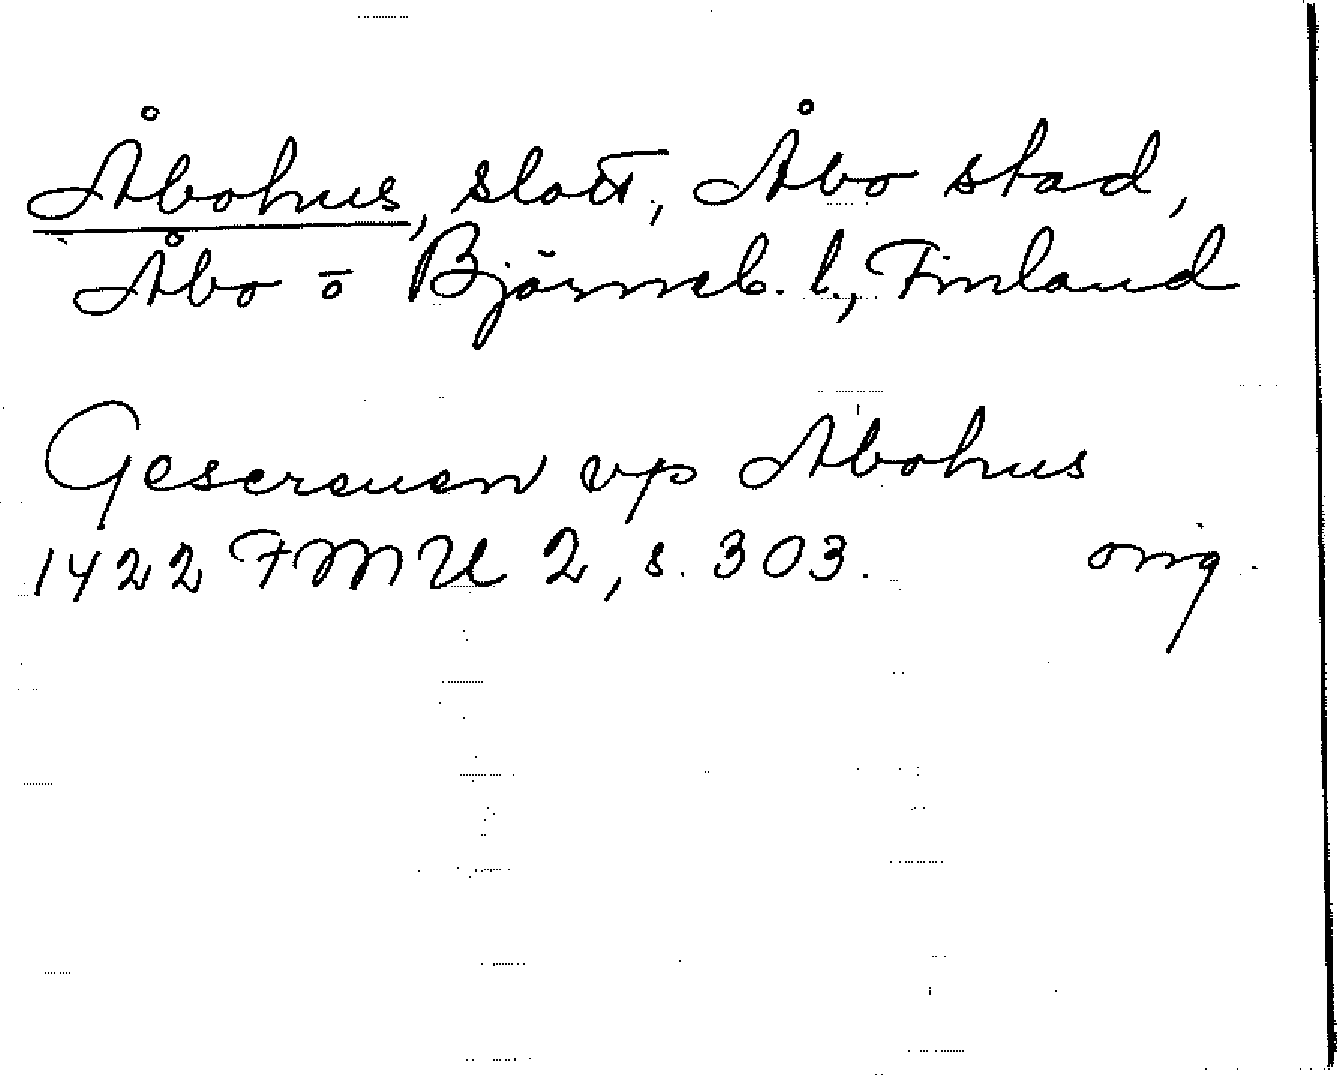 Åbohus, slott, Åbo stad,
Åbo o Björneb. l., Finland
Gescreuen vp Abohus
1422 FMU 2, s. 303. orig.